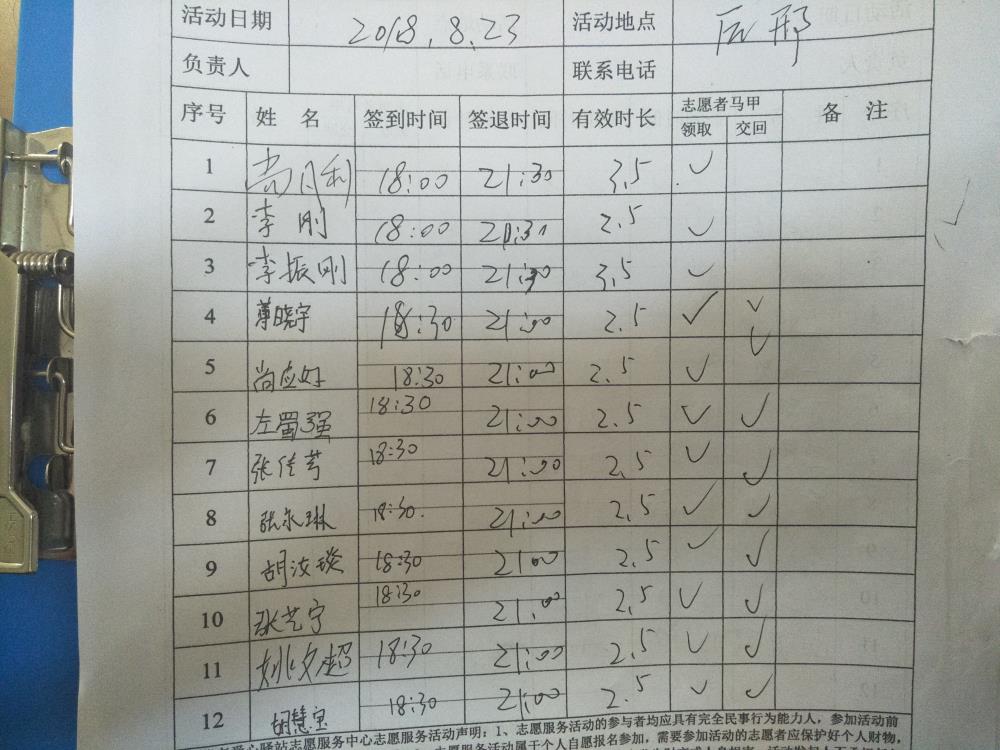 活动日期 2018.8.23 活动地点 后邢
负责人 联系电话
序号 姓 名 签到时间 签退时间 有效时长 志愿者马甲 备 注
领取 交回
1 尚月利 18:00 21:30 3.5 ✓
2 李刚 18:00 21:30 2.5 ✓
3 李振刚 18:00 21:30 3.5 ✓
4 晓宇 18:30 21:00 2.5 ✓ ✓
5 尚应好 18:30 21:00 2.5 ✓ ✓
6 左蜀强 18:30 21:00 2.5 ✓ ✓
7 张佳芎 18:30 21:00 2.5 ✓ ✓
8 张永琳 18:30. 21:00 2.5 ✓ ✓
9 胡汝琰 18:30 21:00 2.5 ✓ ✓
10 张艺宁 18:30 21:00 2.5 ✓ ✓
11 姚文超 18:30 21:00 2.5 ✓ ✓
12 胡慧宝 18:30 21:00 2.5 ✓ ✓
爱心驿站志愿服务中心志愿服务活动声明：1、志愿服务活动的参与者均应具有完全民事行为能力人，参加活动前
志愿服务活动属于个人自愿报名参加，需要参加活动的志愿者应保护好个人财物，